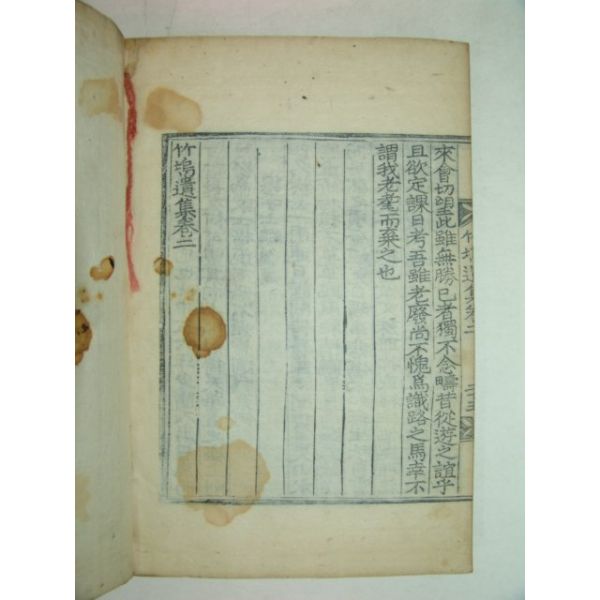 竹塢遺集卷二
二十三
來會切望此雖無勝己者獨不念疇昔從遊之誼乎
且欲定課日考吾雖老廢尚不愧爲識路之馬幸不
謂我老耄而棄之也
竹塢遺集卷二